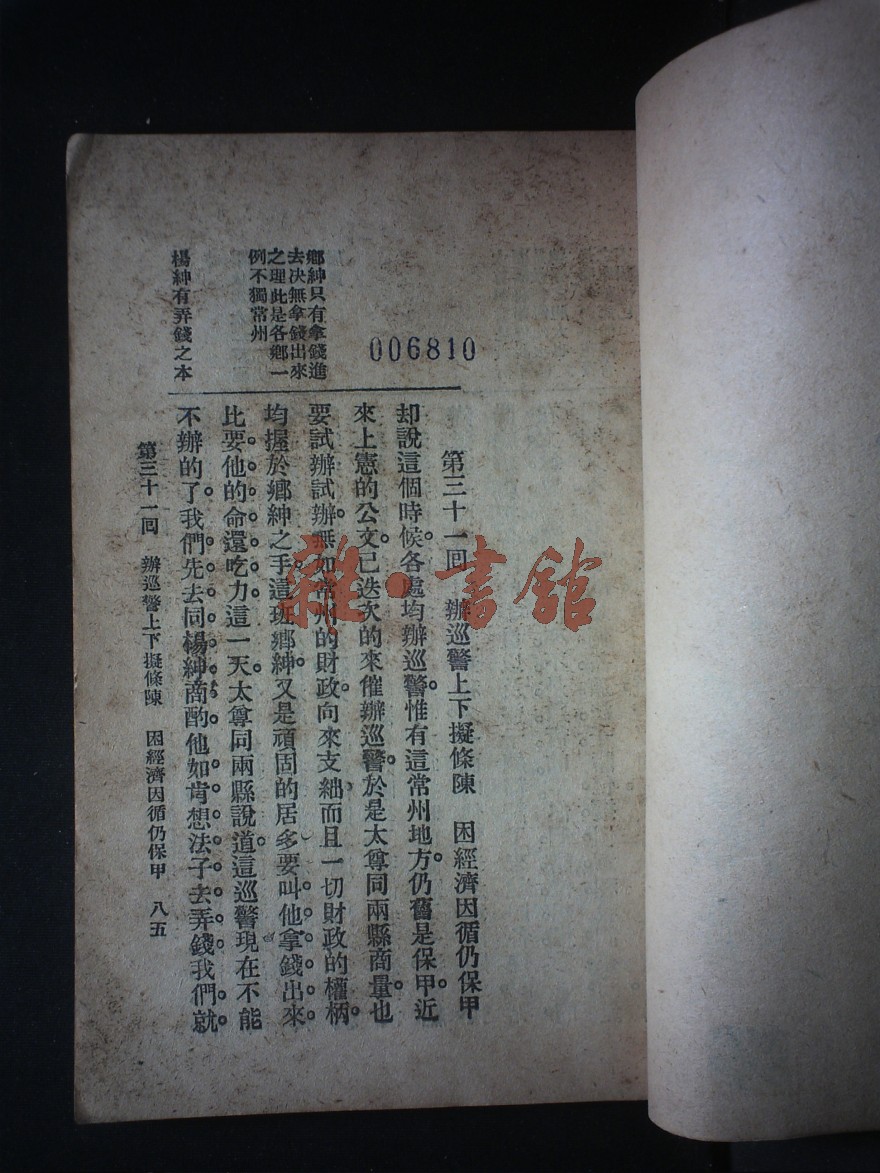 鄉紳只有拿錢進
去决無拿錢出來
之理此是各鄉一
例不獨常州
楊紳有弄錢之本
006810
第三十一回　辦巡警上下擬條陳　困經濟因循仍保甲
却說這個時候。各處均辦巡警。惟有這常州地方。仍舊是保甲。近
來上憲的公文。已迭次的來催辦巡警。於是太尊同兩縣商量。也
要試辦試辦。無如常州的財政。向來支絀。而且一切財政的權柄。
均握於鄉紳之手。這班鄉紳。又是頑固的居多。要叫他拿錢出來。
比要他的命還吃力。這一天。太尊同兩縣說道。這巡警現在不能
不辦的了。我們先去同楊紳商酌。他如肯想法子去弄錢。我們就
第三十一回　辦巡警上下擬條陳　困經濟因循仍保甲　八五
雜·書館